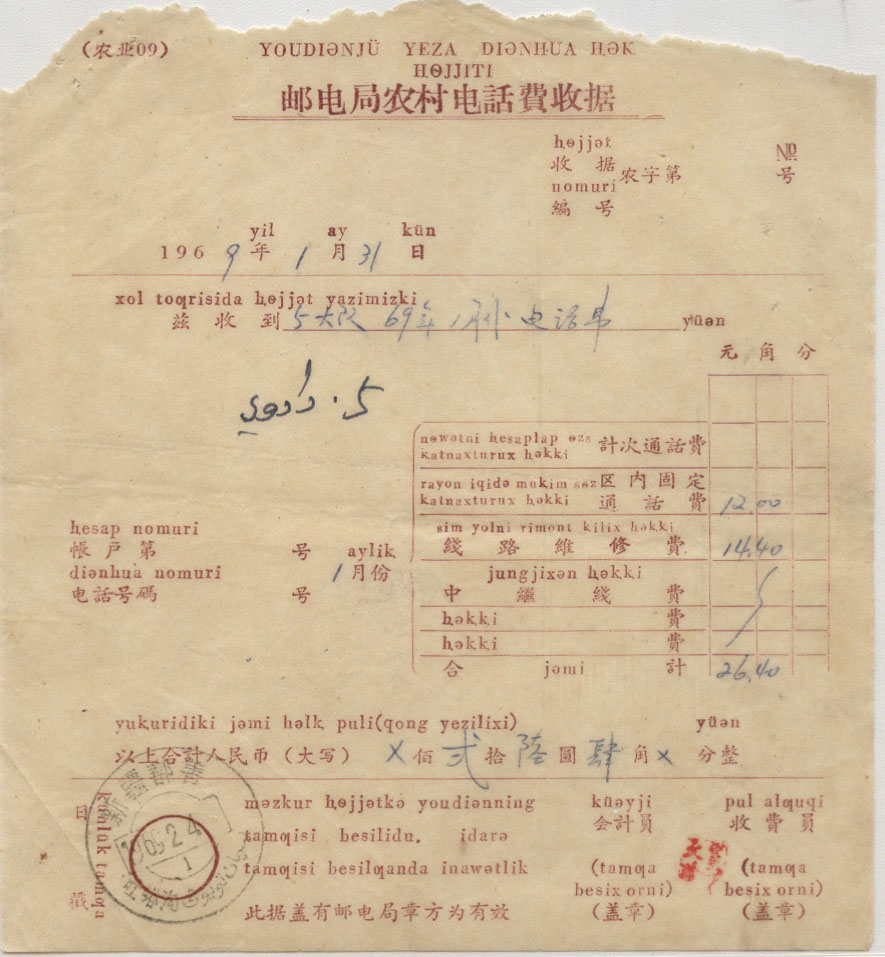 (农业09)
YOUDIƏNJÜ YEZA DIƏNHUA ⱧƏK
ⱧƟJJITI
邮电局农村电話費收据
ⱨɵjjət
收据
nomuri
编号
农字第
№
号
yil ay kün
1969年1月31日
xol toƣrisida ⱨɵjjət yazimizki
兹收到 5大队 69年1月 电话费 yüən
元 角 分
5
nɵwətni hesaplap
katnaxturux ⱨəkki
計次通話費
rayon iqidə mukim sɵz
katnaxturux ⱨəkki
区内固定
通話費 12.00
sim yolni rimont kilix ⱨəkki
綫路維修費 14.40
jungjixən ⱨəkki
中繼綫費
ⱨəkki 費
ⱨəkki 費
合 jəmi 計 26.40
ⱨesap nomuri
帳戶第 号
aylik
1月份
diənhua nomuri
电話号碼 号
yukuridiki jəmi həlk puli(qong yezilixi) yüən
以上合計人民币(大写) X佰贰拾陸圓肆角X分整
日戳
künlük tamƣa
新疆鄯善
69.2.4
1
məzkur ⱨɵjjətkə youdiənning
tamƣisi besilidu. idarə
tamƣisi besilƣanda inawətlik
此据盖有邮电局章方为有效
küəyji
会計員
(tamƣa
besix orni)
(盖章)
pul alƣuqi
收費員
(tamƣa
besix orni)
(盖章)